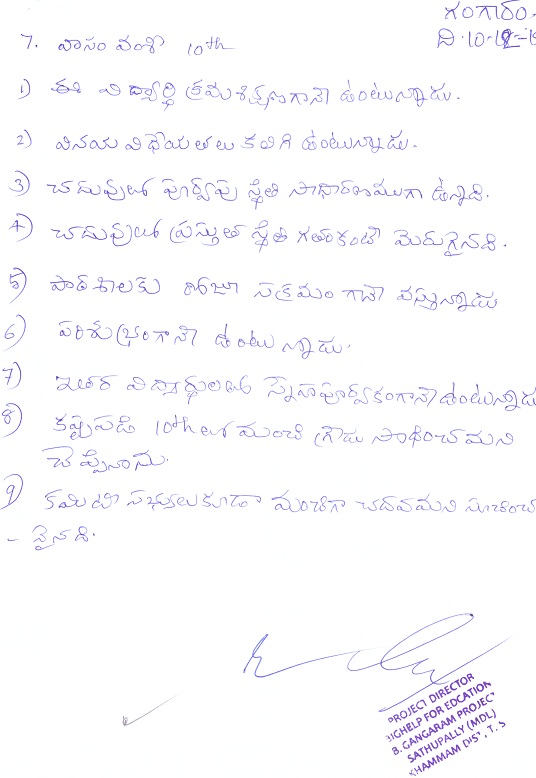 గంగారం.
ది.10-12-
7. వాసం వంశి 10th
1) ఈ విద్యార్థి క్రమశిక్షణగానే ఉంటున్నాడు.
2) వినయ విధేయతలు కలిగి ఉంటున్నాడు.
3) చదువులో పూర్వపు స్థితి సాధారణముగా ఉన్నది.
4) చదువులో ప్రస్తుత స్థితి గతంకంటే మెరుగైనది.
5) పాఠశాలకు రోజూ సక్రమంగానే వస్తున్నాడు
6) పరిశుభ్రంగానే ఉంటున్నాడు.
7) ఇతర విద్యార్థులతో స్నేహపూర్వకంగానే ఉంటున్నాడు
8) కష్టపడి 10th లో మంచి గ్రేడు సాధించమని
చెప్పినాను.
9) కమిటీ సభ్యులుకూడా మంచిగా చదవమని సూచించ
- నైనది.
PROJECT DIRECTOR
HIGHELP FOR EDCATION
B. GANGARAM PROJECT
SATHUPALLY (MDL)
KHAMMAM DIST, T.S